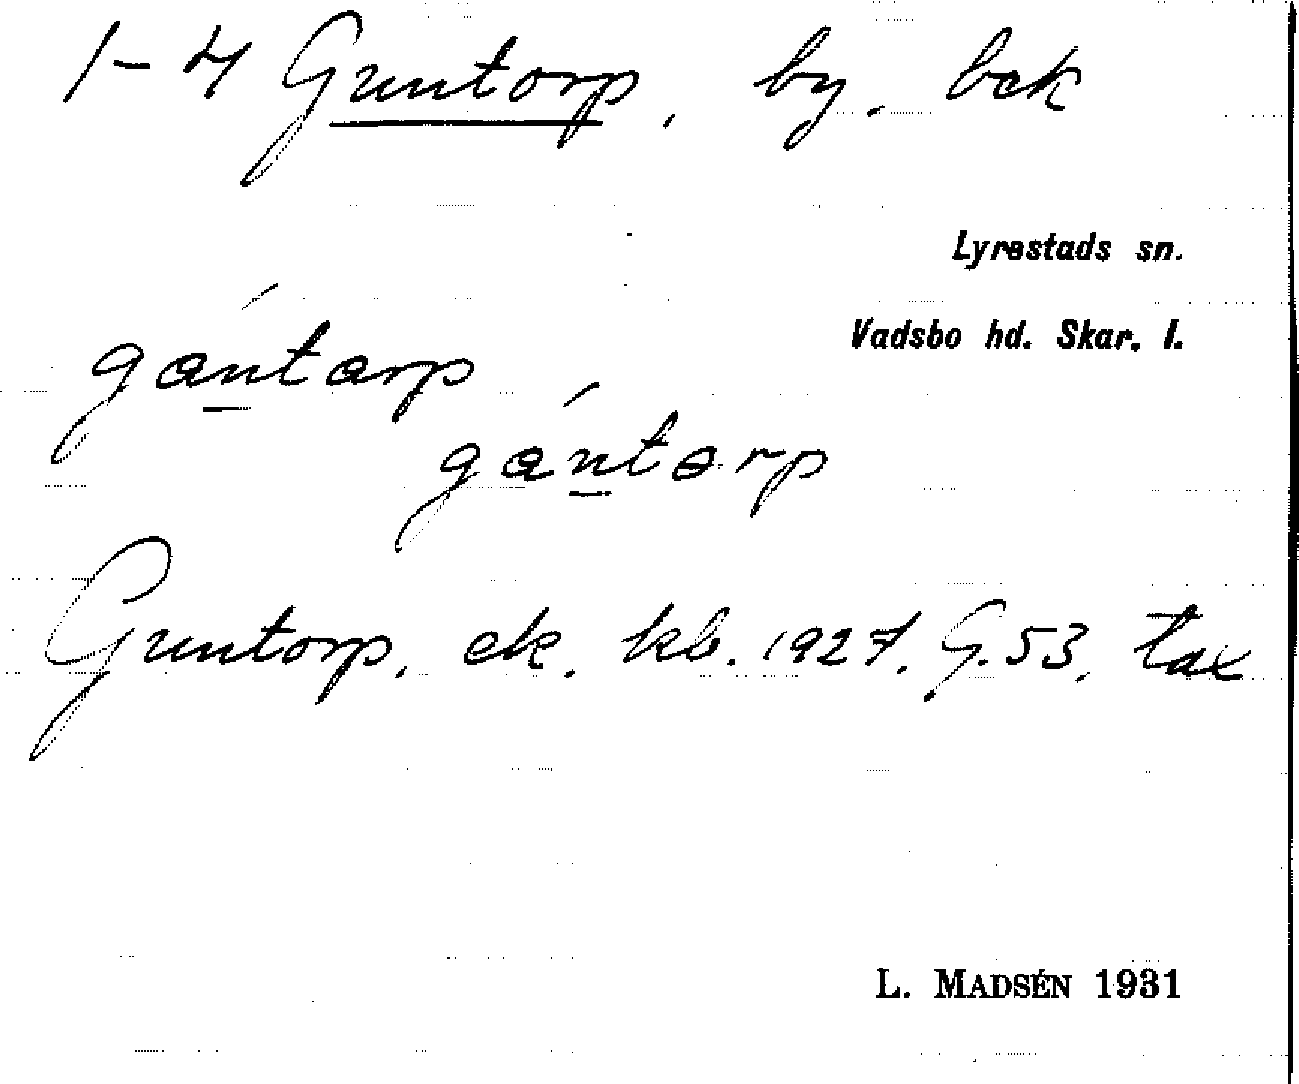 1-4 Guntorp, by. bek
Lyrestads sn.
Vadsbo hd. Skar. l.
gántarp
gántarp
Guntorp, ek. kb. 1927. G. 53, tax
L. MADSÉN 1931